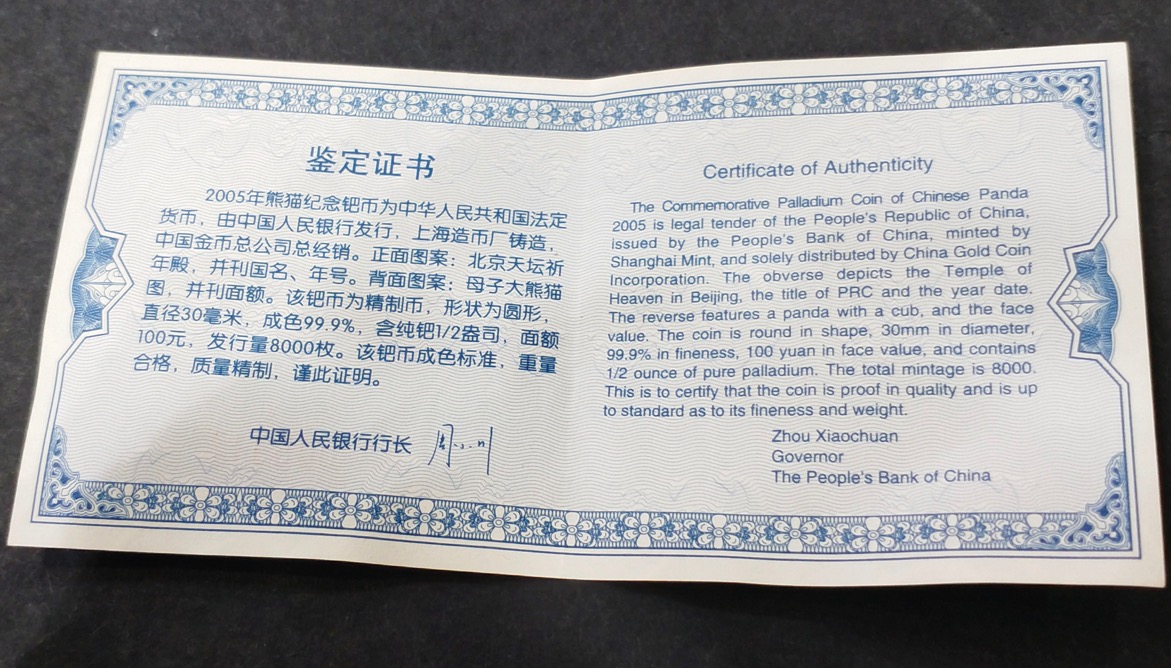 鉴定证书
2005年熊猫纪念钯币为中华人民共和国法定
货币，由中国人民银行发行，上海造币厂铸造，
中国金币总公司总经销。正面图案：北京天坛祈
年殿，并刊国名、年号。背面图案：母子大熊猫
图，并刊面额。该钯币为精制币，形状为圆形，
直径30毫米，成色99.9%，含纯钯1/2盎司，面额
100元，发行量8000枚。该钯币成色标准，重量
合格，质量精制，谨此证明。
中国人民银行行长 周小川
Certificate of Authenticity
The Commemorative Palladium Coin of Chinese Panda
2005 is legal tender of the People's Republic of China,
issued by the People's Bank of China, minted by
Shanghai Mint, and solely distributed by China Gold Coin
Incorporation. The obverse depicts the Temple of
Heaven in Beijing, the title of PRC and the year date.
The reverse features a panda with a cub, and the face
value. The coin is round in shape, 30mm in diameter,
99.9% in fineness, 100 yuan in face value, and contains
1/2 ounce of pure palladium. The total mintage is 8000.
This is to certify that the coin is proof in quality and is up
to standard as to its fineness and weight.
Zhou Xiaochuan
Governor
The People's Bank of China